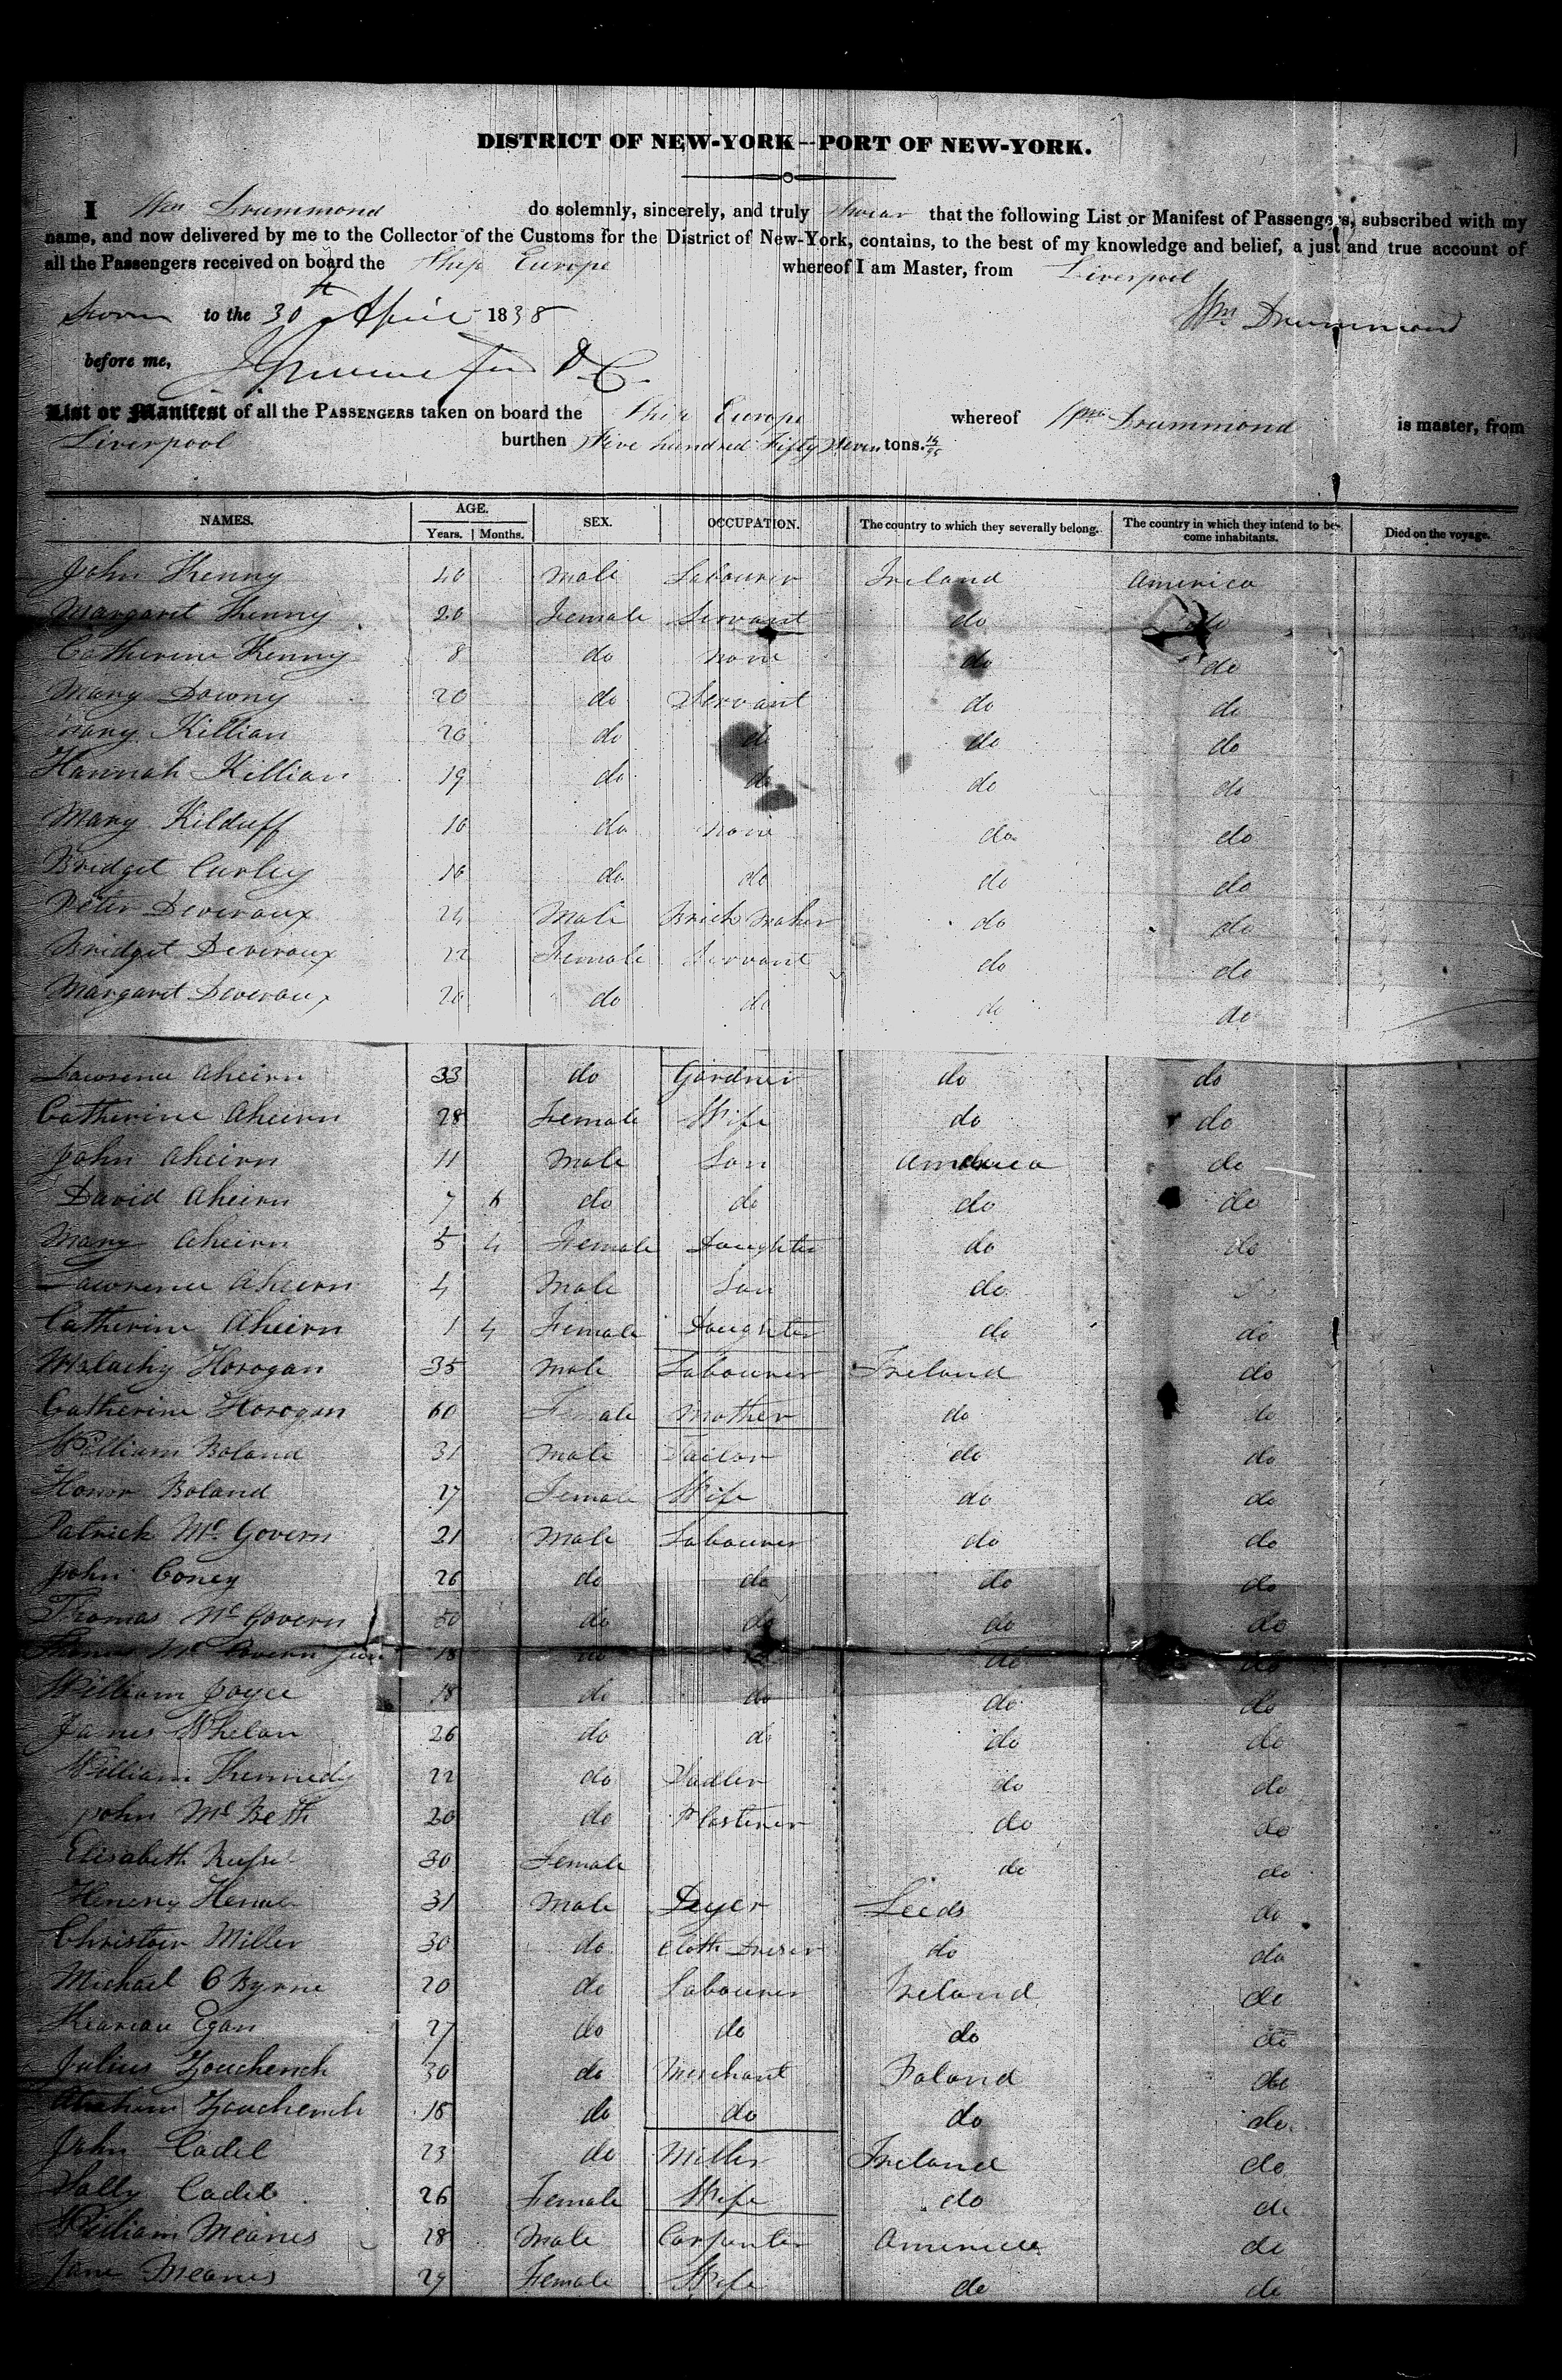 DISTRICT OF NEW-YORK—PORT OF NEW-YORK.
I Wm Drummond do solemnly, sincerely, and truly swear that the following List or Manifest of Passengers, subscribed with my
name, and now delivered by me to the Collector of the Customs for the District of New-York, contains, to the best of my knowledge and belief, a just and true account of
all the Passengers received on board the Ship Europe whereof I am Master, from Liverpool
Sworn to the 30th April 1838 Wm Drummond
before me, D.C.
List or Manifest of all the PASSENGERS taken on board the Ship Europe whereof Wm Drummond is master, from
Liverpool burthen Five hundred Fifty Seven tons. 14/95
NAMES. AGE. Years. Months. SEX. OCCUPATION. The country to which they severally belong. The country in which they intend to become inhabitants. Died on the voyage.
John Kenny 40 Male Labourer Ireland America
Margaret Kenny 20 Female Servant do do
Catherine Kenny 8 do none do do
Mary Downy 20 do Servant do do
Mary Killian 20 do do do do
Hannah Killian 19 do do do do
Mary Kilduff 10 do none do do
Bridget Curley 16 do do do do
Peter Deveraux 24 Male Brick Maker do do
Bridget Deveraux 22 Female Servant do do
Margaret Deveraux 20 do do do do
Lawrence Aheirn 33 do Gardner do do
Catherine Aheirn 28 Female Wife do do
John Aheirn 11 Male Son America do
David Aheirn 7 6 do do do do
Mary Aheirn 5 4 Female Daughter do do
Lawrence Aheirn 4 Male Son do do
Catherine Aheirn 1 4 Female Daughter do do
Malachy Horogan 35 Male Labourer Ireland do
Catherine Horogan 60 Female Mother do do
William Boland 31 Male Tailor do do
Honor Boland 27 Female Wife do do
Patrick McGovern 21 Male Labourer do do
John Coney 26 do do do do
Thomas McGovern 50 do do do do
McGovern Jun 18 do do do
William Joyce 18 do do do do
James Whelan 26 do do do do
William Kennedy 22 do Sadler do do
John McBeth 20 do Plasterer do do
Elisabeth Russel 30 Female do do
Henery 31 Male Dyer Leeds do
Christoer Miller 30 do Cloth Dreser do do
Michael O Byrne 20 do Labourer Ireland do
Kearan Egan 27 do do do do
Julius Zouchench 30 do Merchant Poland do
Abraham Zouchench 18 do do do do
John Cadel 23 do Miller Ireland do
Sally Cadel 26 Female Wife do do
William Meanes 28 Male Carpenter America do
Jane Meanes 29 Female Wife do do